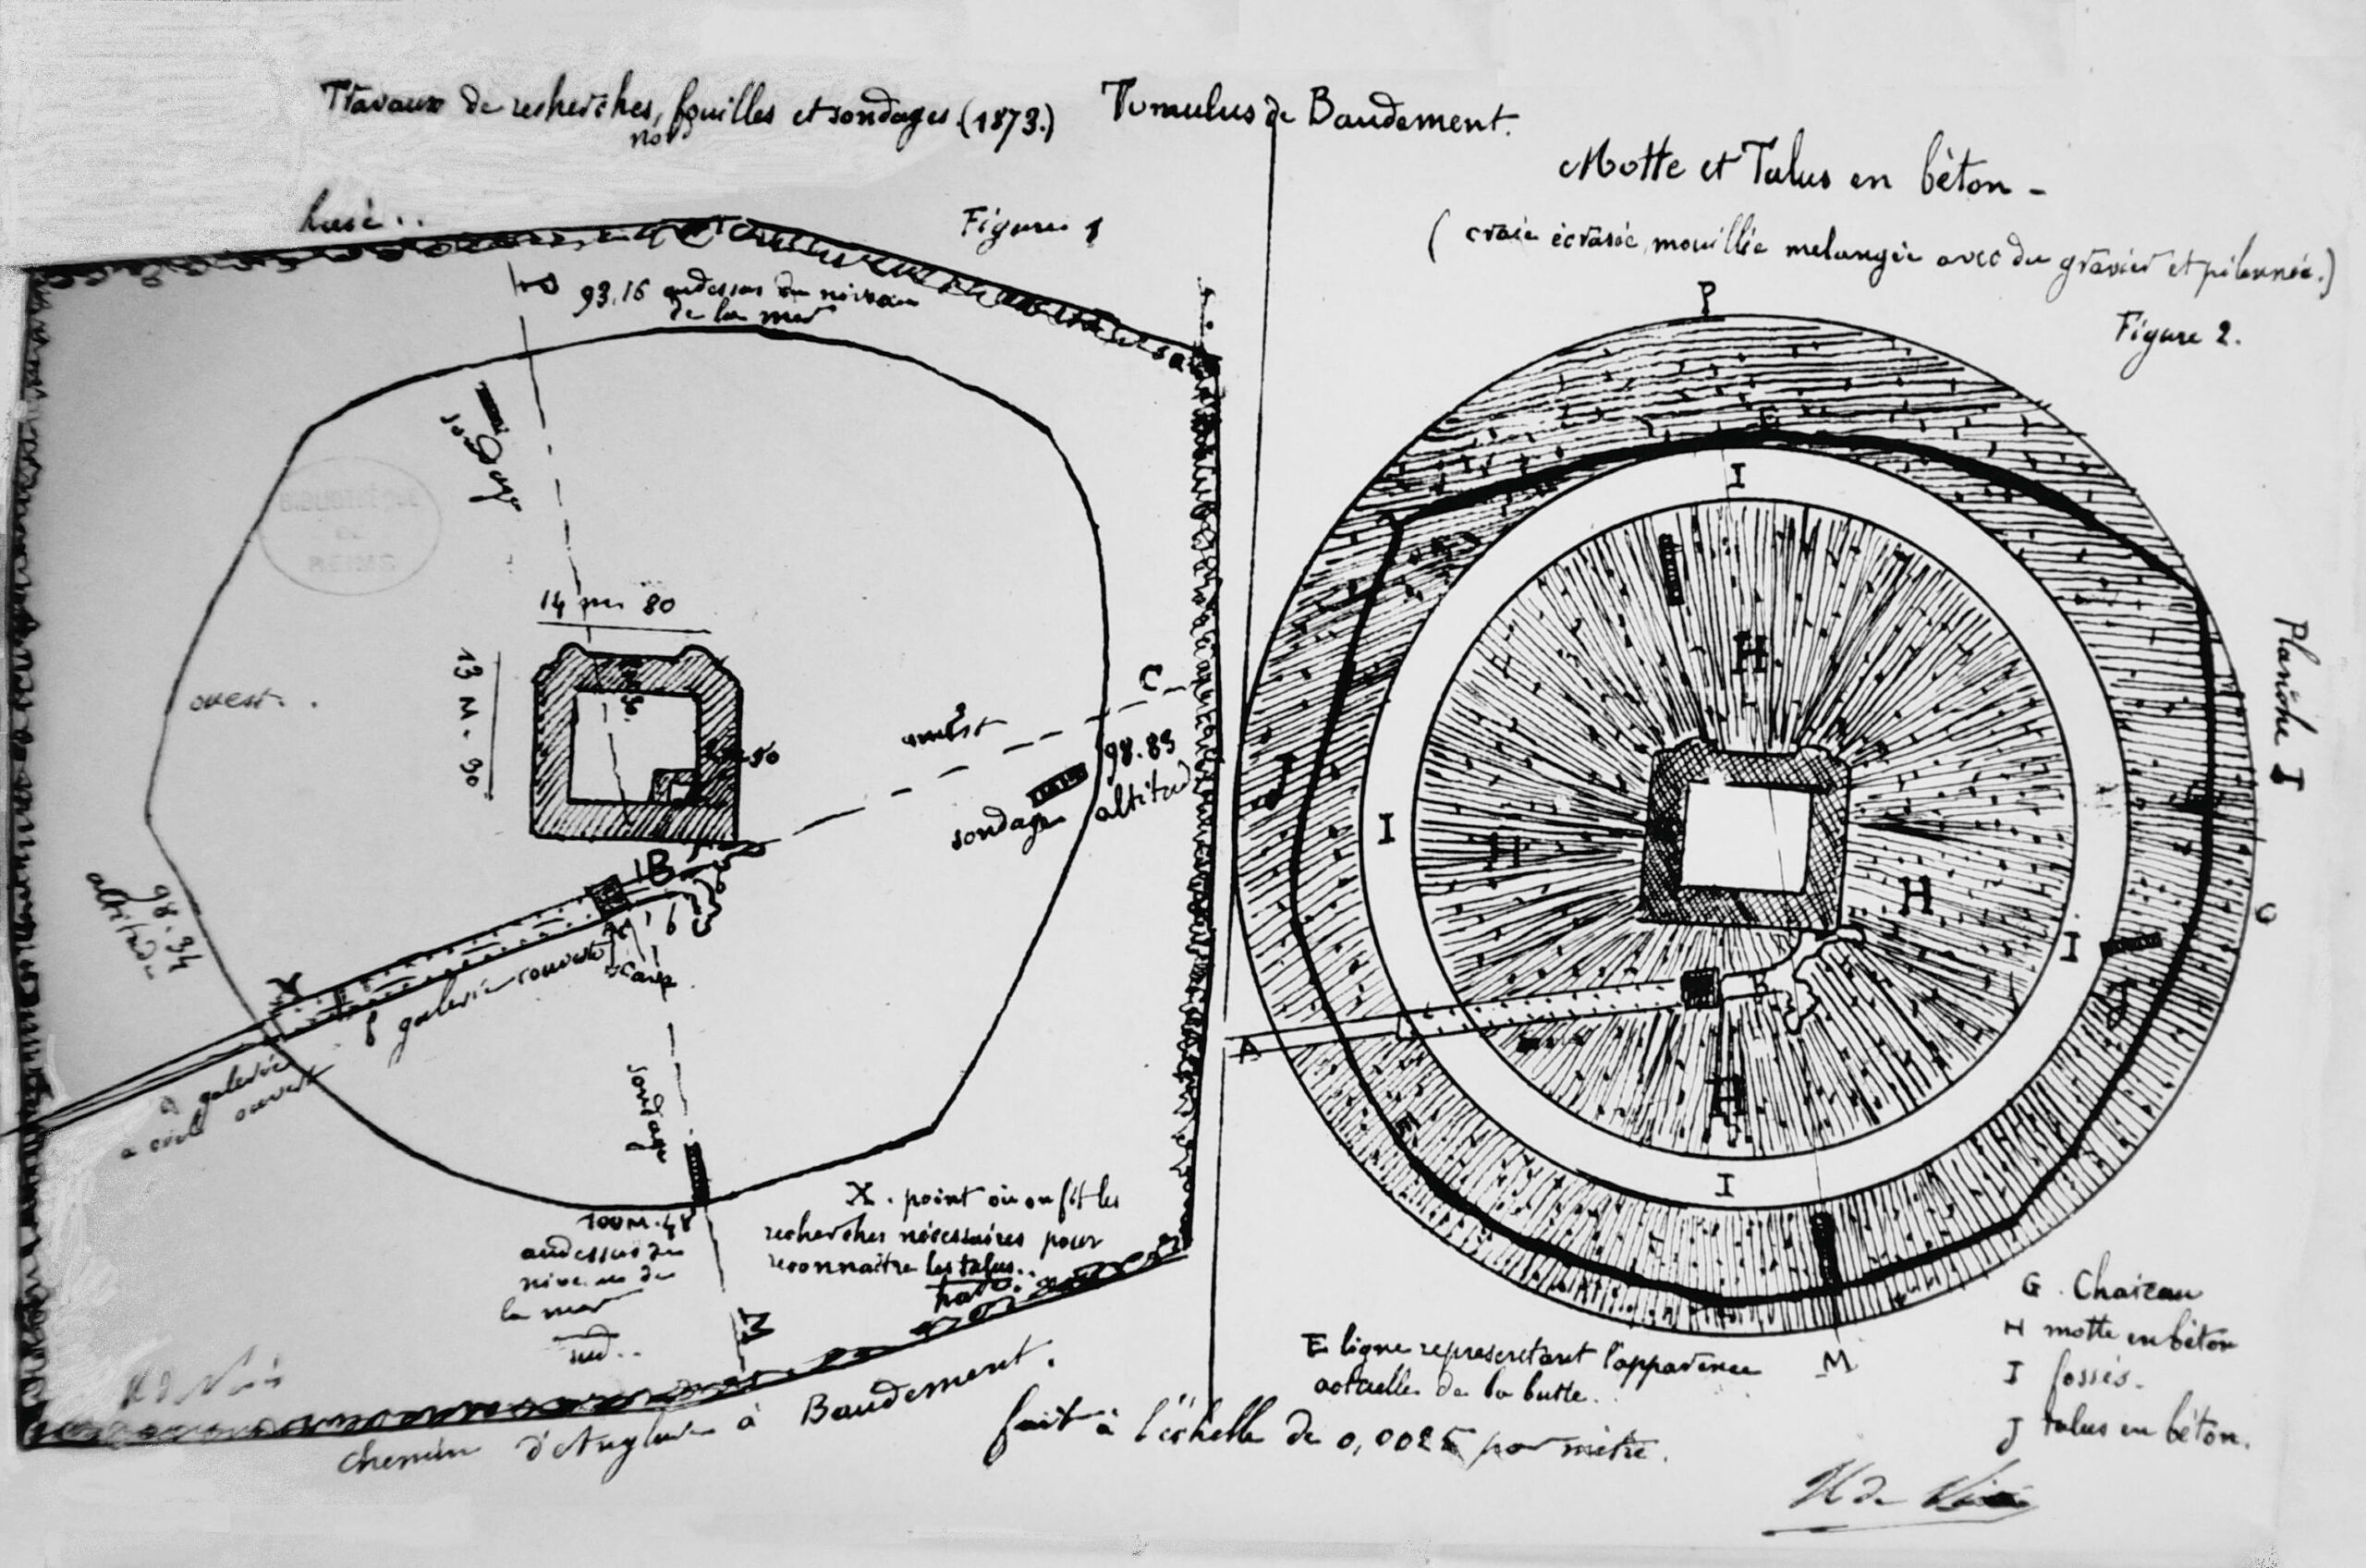 Travaux de recherches, fouilles et sondages. (1873.) Tumulus de Baudement.
nord
Motte et Talus en béton -
( craie écrasée, mouillée melangée avec du gravier et pilonnée.)
Figure 1
Figure 2.
Planche I
93.16 audessus du niveau
de la mer
sondage
14 m 80
13 M. 90
ouest..
C
98.83
altitude
sondage
B
98.34
altitude
X
f galerie couverte
a galerie
a ciel ouvert
sondage
100M.48
audessus du
niveau de
la mer
sud..
X. point où on fit les
recherches nécessaires pour
reconnaître les talus..
M
chemin d'Anglure à Baudement.
fait à l'échelle de 0,0025 par mètre.
P
E
I
H
J
I
H
H
I
O
A
B
J
H
E
I
M
E ligne representant l'apparence
actuelle de la butte..
G. Chateau
H motte en béton
I fossés.
J talus en béton.